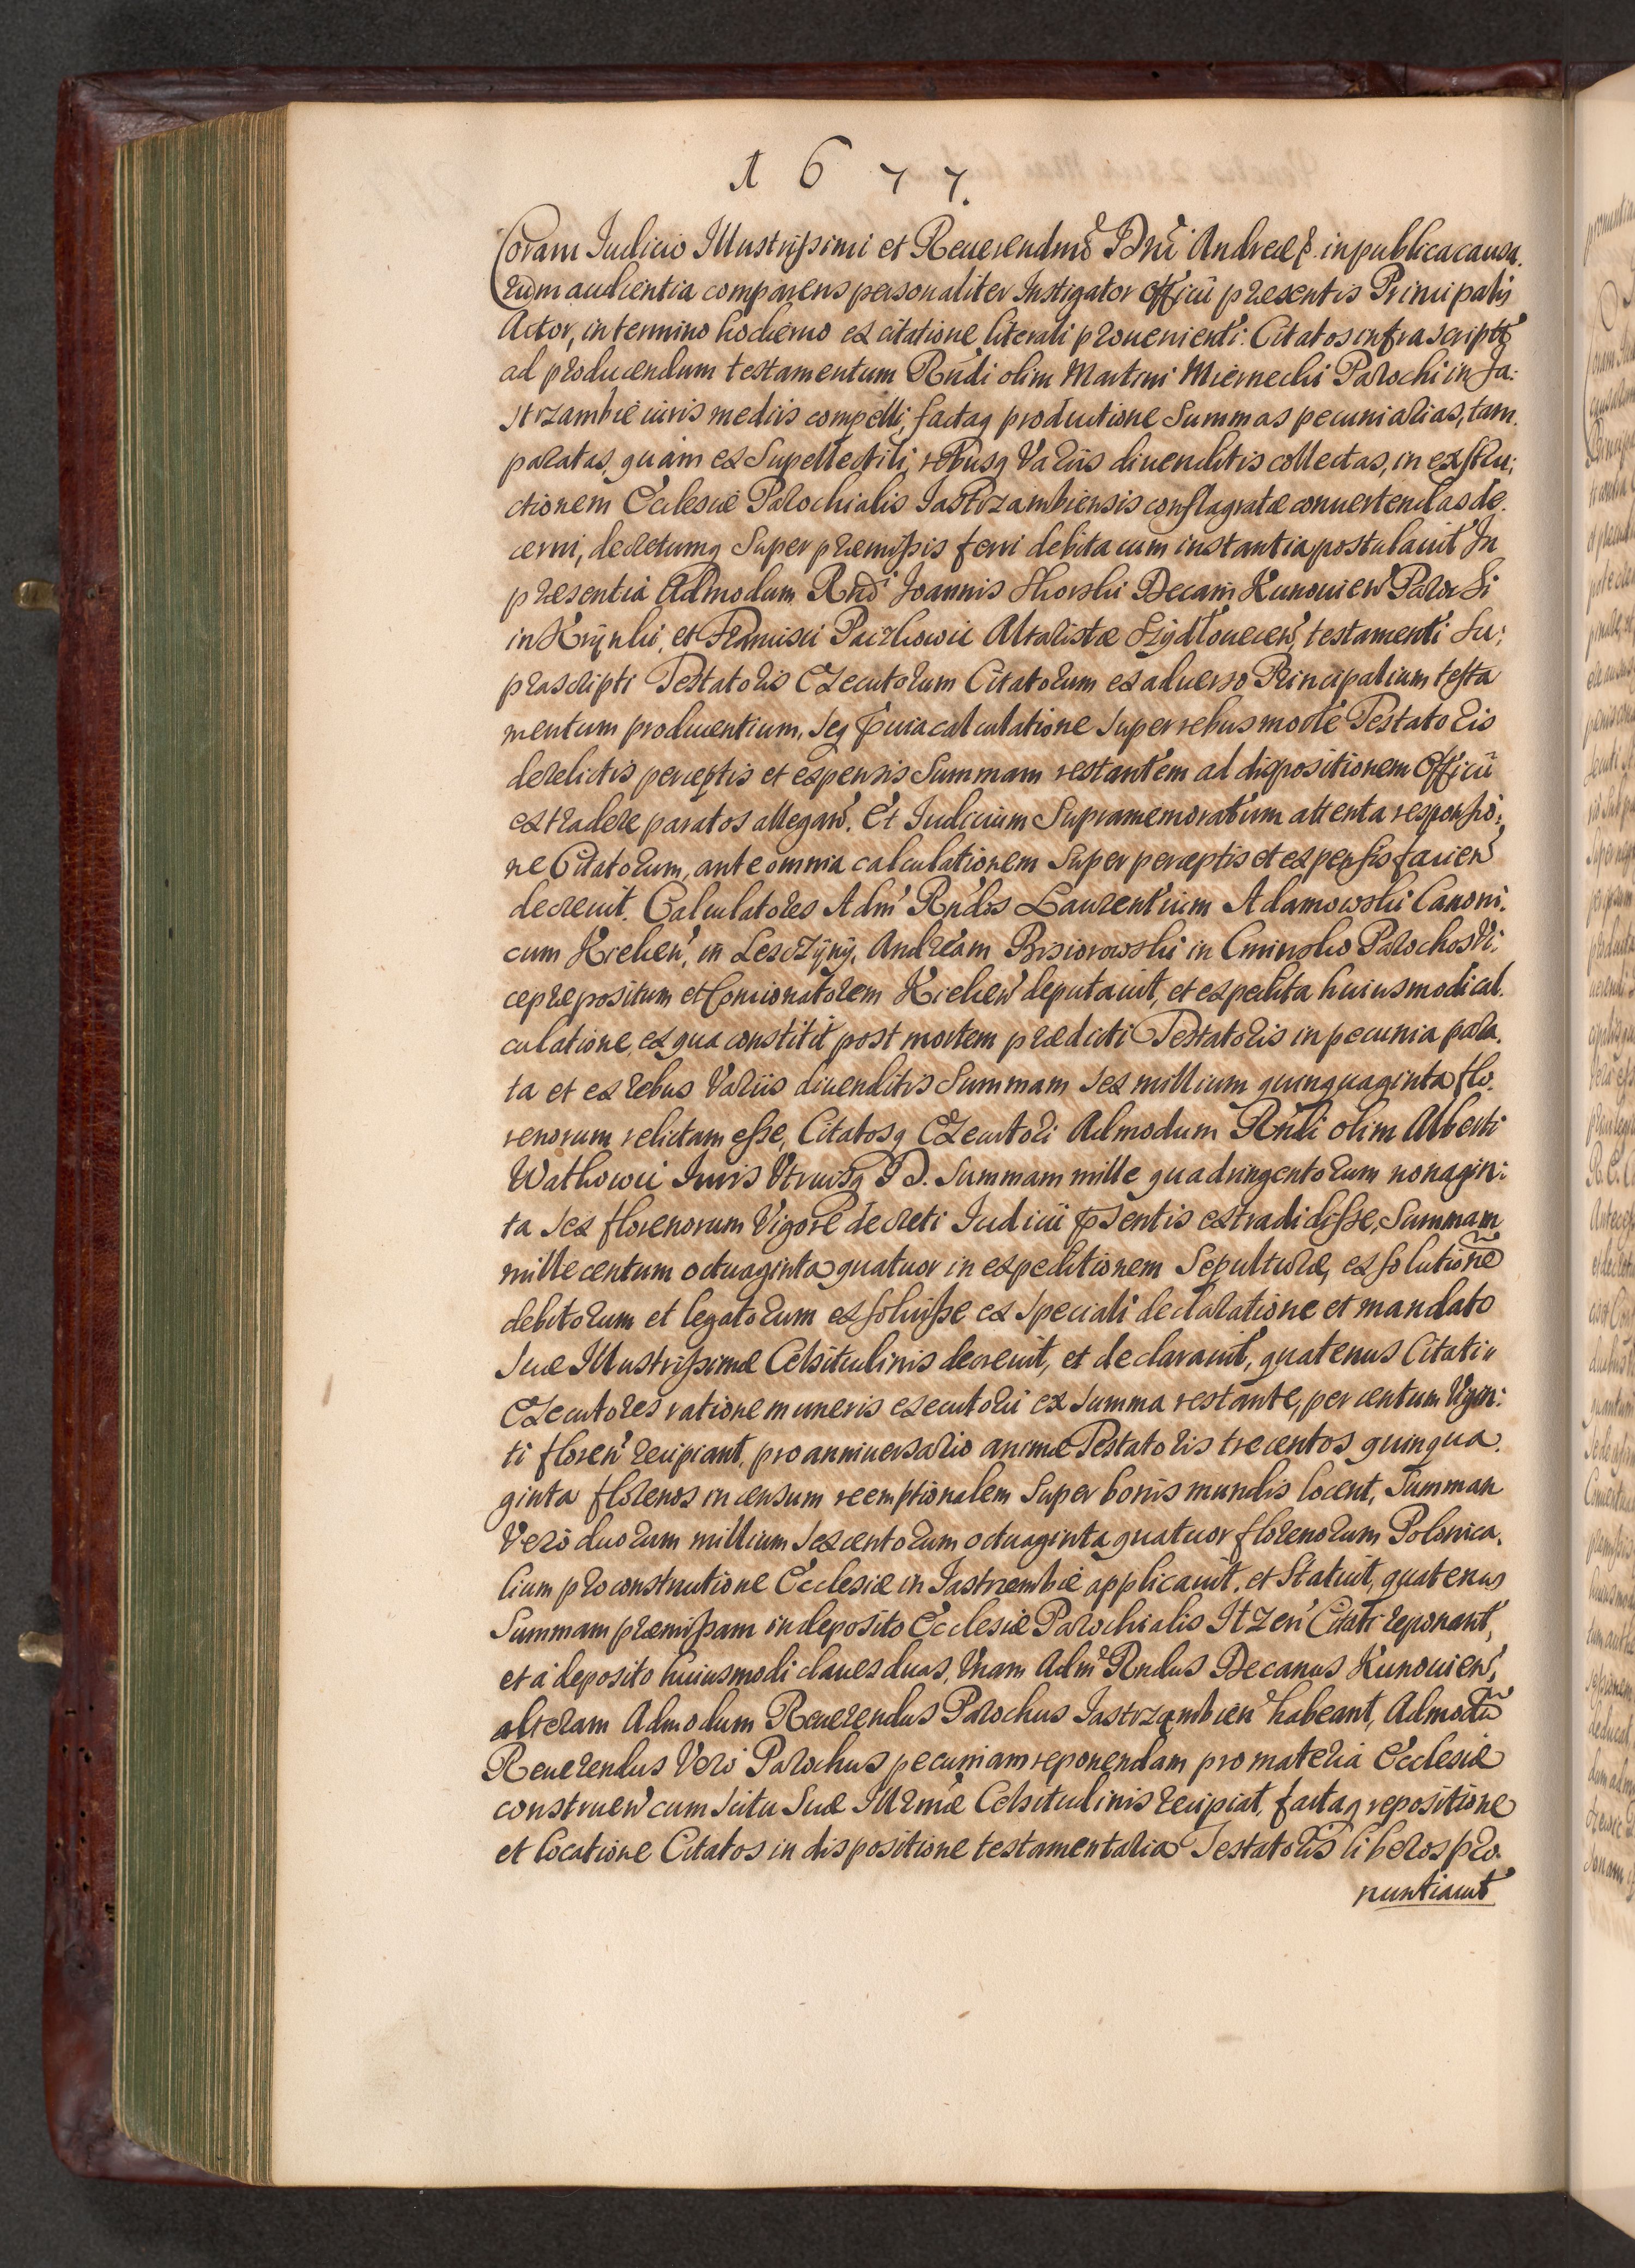 1677.
Coram Iudicio Illustrissimi et Reuerendmi Dni Andreæ &. in publica causa.
rum audientia comparens personaliter Instigator Officii præsentis Principalis
Actor, in termino hodierno ex citatione literali prouenienti: Citatos infrascriptos
ad producendum testamentum Rndi olim Martini Miernecki Parochi in Ja:
strzambie iuris mediis compelli, factaq productione Summas pecuniarias, tam
paratas, quàm ex Supellectili, rebusq Variis diuenditis collectas, in exstru:
ctionem Ecclesiæ Parochialis Jastrzambiensis conflagratæ conuertendas de.
cerni, decretumq Super præmissis ferri debita cum instantia postulauit In
præsentia Admodum Rndi Joannis Skorski Decani Kunouien Parochi
in Krynki, et Francisci Paczkowic Altaristæ Szydłouecen, testamenti Su:
prascripti Testatoris Executorum Citatorum ex aduerso Principalium testa
mentum producentium, seq præuia calculatione super rebus morte Testatoris
derelictis perceptis et expensis Summam restantem ad dispositionem Officii
extradere paratos allegan. Et Iudicium Supramemoratum attenta responsio:
ne Citatorum, ante omnia calculationem Super perceptis et expensis facien
decreuit. Calculatores Adm Rndos Laurentium Adamowski Canoni.
cum Kielcen, in Leszczyny, Andream Pisiorowski in Cminsko Parochos Vi:
cepræpositum et Concionatorem Kielcen deputauit, et expedita huiusmodi cal.
culatione, ex qua constitit post mortem prædicti Testatoris in pecunia para.
ta et ex rebus Variis diuenditis Summam sex millium quinquaginta flo.
renorum relictam esse, Citatosq Executori Admodum Rndi olim Alberti
Wathowic Iuris Vtriusq D. Summam mille quadringentorum nonagin:
ta sex florenorum Vigore decreti Iudicii præsentis extradidisse, Summam
mille centum octuaginta quatuor in expeditionem Sepulturæ, exsolutione
debitorum et legatorum exsoluisse ex speciali declaratione et mandato
Suæ Illustrissimæ Celsitudinis decreuit, et declarauit, quatenus Citati
Executores ratione muneris executorii ex summa restante, per centum Vigin:
ti floren recipiant, pro anniuersario animæ Testatoris trecentos quinqua.
ginta florenos in censum reemptionalem Super bonis mundis locent, Summam
Verò duorum millium sexcentorum octuaginta quatuor florenorum Polonica.
lium pro constructione Ecclesiæ in Jastrzembie applicauit, et Statuit, quatenus
Summam præmissam in deposito Ecclesiæ Parochialis Jtzen Citati reponant,
et à deposito huiusmodi claues duas, Vnam Adm Rndus Decanus Kunouien,
alteram Admodum Reuerendus Parochus Jastrzambien habeant, Admodũ
Reuerendus Verò Parochus pecuniam reponendam pro materia Ecclesiæ
construen cum scitu Suæ Illrmæ Celsitudinis recipiat, factaq repositione
et locatione Citatos in dispositione testamentaria Testatoris liberos pro.
nuntiauit